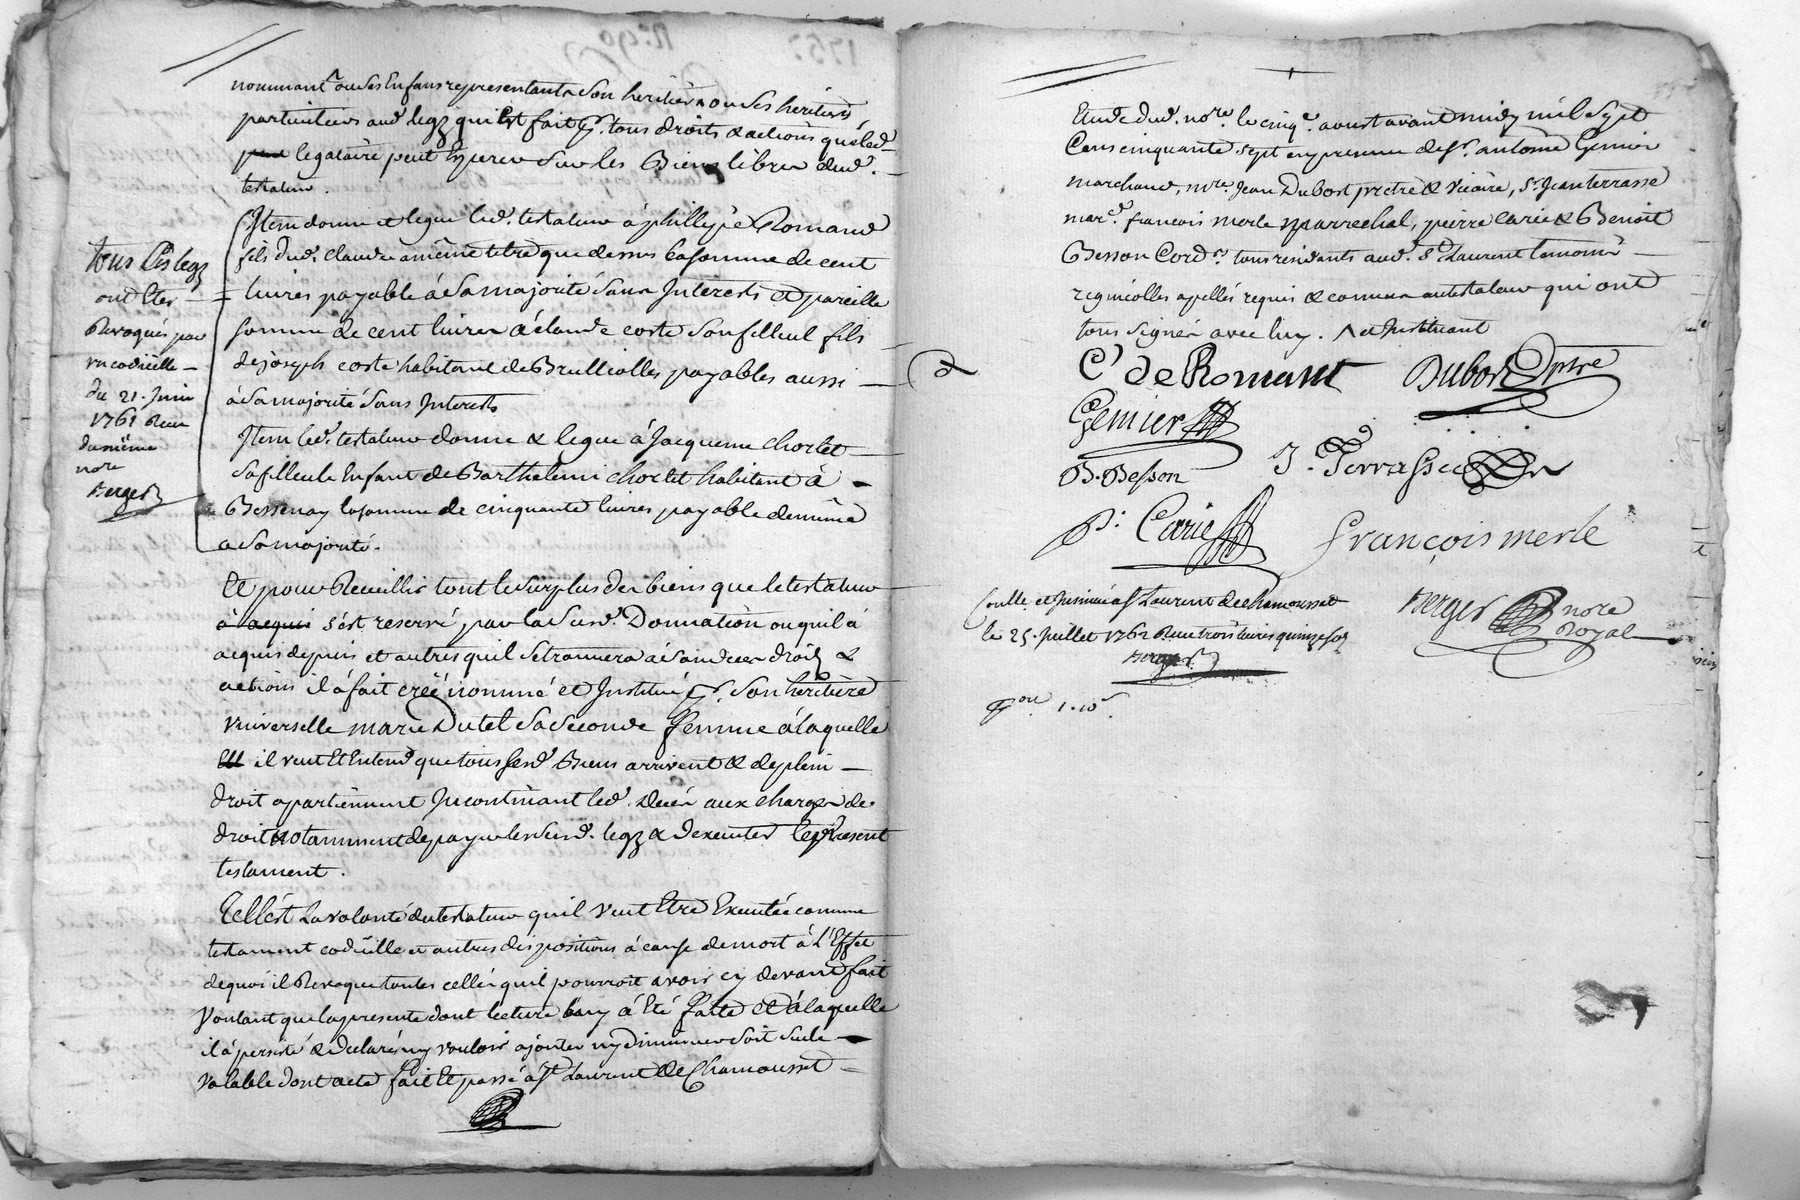 nommant ou ses Enfans representants son heritiere ou ses heritiers
particuliers aud. legz qui Est fait pr. tous droits & actions que led.
legataire peut Esperer sur les Biens libres dud.
testateur.
Jtem donne et legue led. testateur à phillipe Romand
fils dud. claude a même titre que dessus la somme de cent
livres payable à Sa majorité Sans Jnterests et pareille
somme de cent livres à claude coste son filleul fils
de joseph coste habitant de Brullioles payables aussi
à Sa majorité Sans Jnterests
Jtem led. testateur donne & legue à Jacqueme chorlet
sa filleule Enfant de Barthelemi chorlet habitant à
Bessenay la somme de cinquante livres payable de même
a Sa majorité.
tous Les legz
ont Etes
Revoqués par
un codicille
du 21. Juin
1761 Recu
du même
nore
Berger
Et pour Recuillir tout le surplus des biens que le testateur
à acquis s'est reservé par la Susd. Donnation ou quil à
acquis depuis et autres quil se trouvera à Son deces droits &
actions il à fait créé nommé et Jnstitué pr. Son heritiere
vniverselle marie Dutel Sa Seconde femme à laquelle
il veut Et Entend que tous sesd. Biens arrivent & de plein
droit apartiennent Jncontinant led. deces aux charges de
droit notamment de payer les susd. legz & d'executer le present
testament.
Telle Est La volonté du testateur quil veut Etre Executée comme
testament codicille et autres dispositions à cause de mort à L'Effet
de quoi il Revoque toutes celles quil pourroit avoir cy devant fait
voulant que la presente dont lecture luy à Eté faitte et à laquelle
il à persisté & declaré ny vouloir ajouter ny diminuer soit seule
valable dont acte fait Et passé à St Laurent de Chamousset
Etude dud. nore. le cinq. aoust avant midy mil sept
Cens cinquante sept en presence de sr. antoine Gemier
marchand, mre. Jean Dubost prêtre & vicaire, sr. Jean terrasse
marcd. francois merle marrechal, pierre carie & Benoit
Besson Cordr. tous residants aud. St. Laurent temoins
regnicolles apellés requis & connus au testateur qui ont
tous signés avec luy. et Jnstituant
Cl de Romant Dubost ptre
Gemier
B. Besson J. Terrasse
P. Carie françois merle
Berger nore Royal
Coulle et Jnsinué à St Laurent de chamousset
le 25. Juillet 1762 Recu trois livres quinze sols
Berger
1. 10s